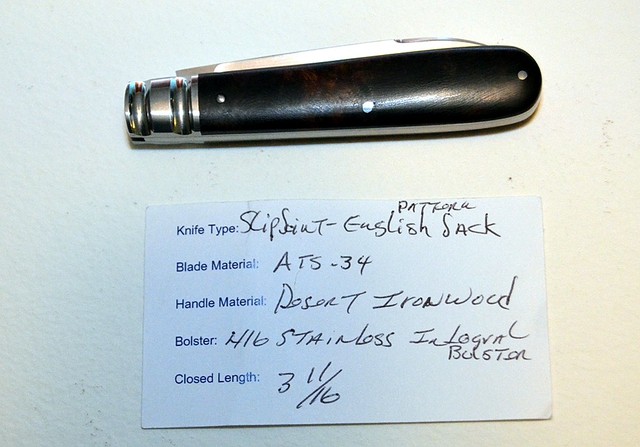 Knife Type: Slip Joint - English Jack Pattern
Blade Material: ATS-34
Handle Material: Desert Ironwood
Bolster: 416 Stainless Integral Bolster
Closed Length: 3 11/16